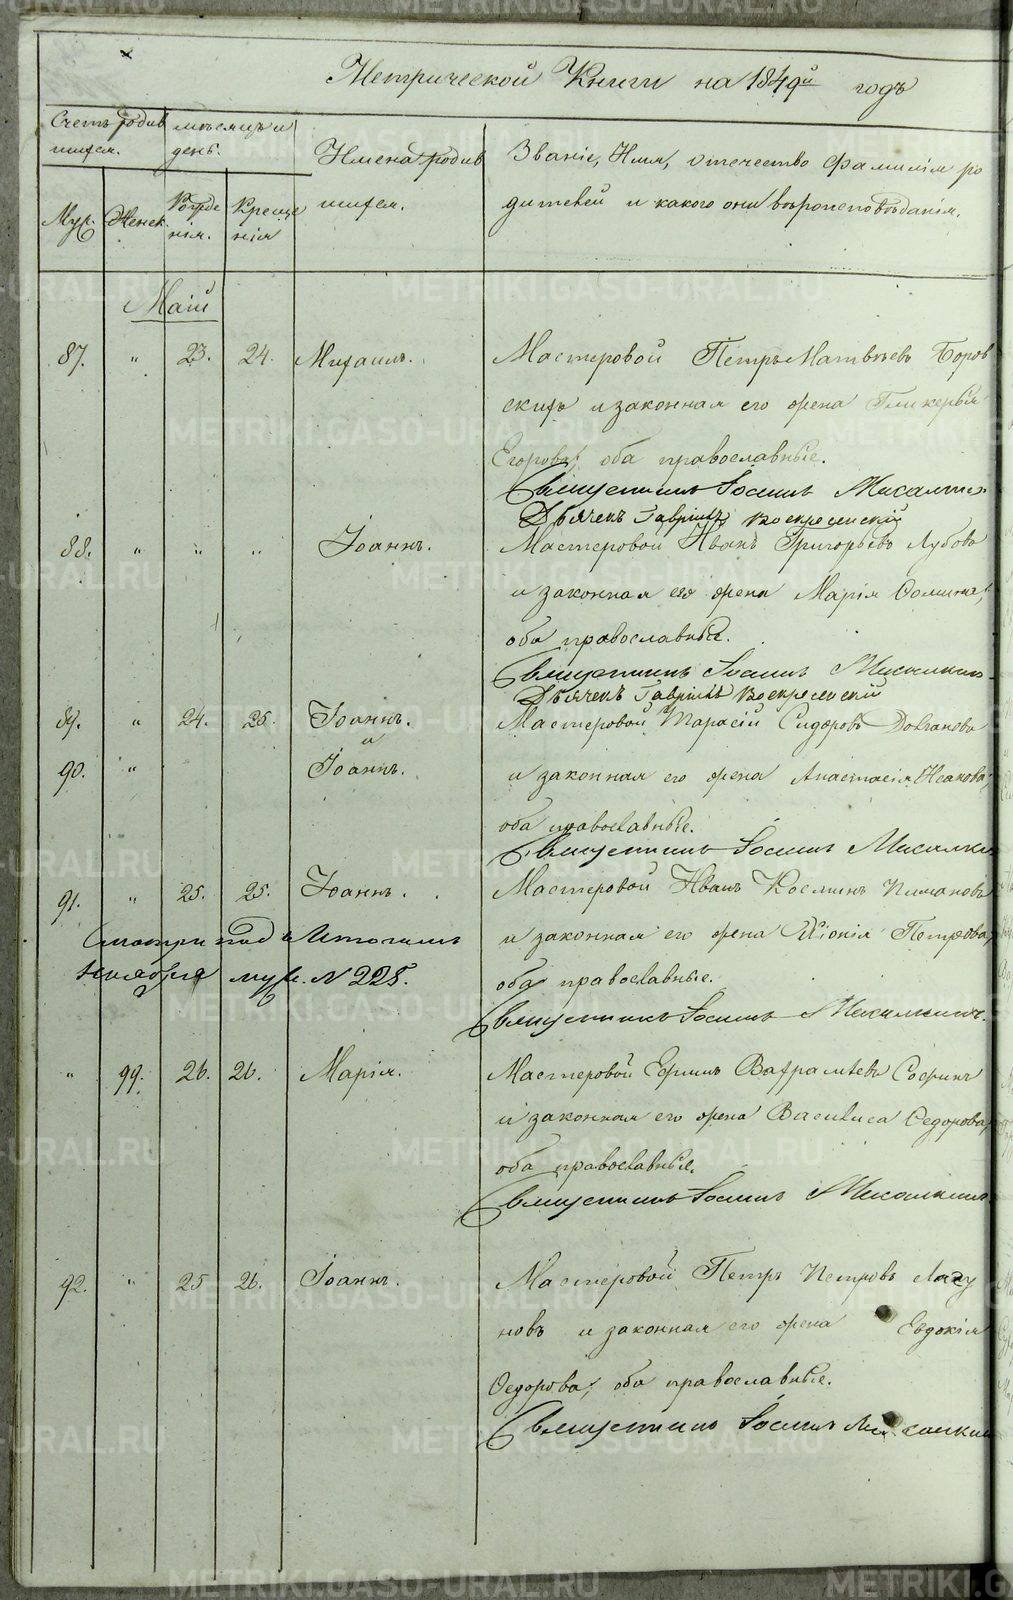 Метрической Книги на 1849й годъ
Счетъ родив
шихся.
мѣсяцъ и
день.
Имена родив
шихся.
Званіе, Имя, отечество Фамилія ро
дителей и какого они вѣроисповѣданія.
Муж. Женск.
Рожде
нія.
Креще
нія
Маій
87. " 23. 24. Михаилъ. Мастеровой Петръ Матвѣевъ Боров
скихъ и законная его жена Гликерья
Егорова, оба православные.
Священникъ Іосифъ
Дьячекъ Гавріилъ Воскресенскій
88. " " " Іоаннъ. Мастеровой Иванъ Григорьевъ Зубовъ
и законная его жена Марія Фомина,
оба православные.
Священникъ Іосифъ
Дьячекъ Гавріилъ Воскресенскій
89. " 24. 25. Іоаннъ. Мастеровой Тарасій Сидоровъ
и
90. " Іоаннъ. и законная его жена Анастасія Исакова,
оба православные.
Священникъ Іосифъ
91. " 25. 25. Іоаннъ. Мастеровой Иванъ Косминъ
Смотри подъ Итогомъ
и законная его жена Петрова,
Ноября муж. N 225.
оба православные.
Священникъ Іосифъ
" 99. 26. 26. Марія. Мастеровой Ефимъ Варфаламѣевъ
и законная его жена Василиса Федорова,
оба православные.
Священникъ Іосифъ
92. " 25 26. Іоаннъ. Мастеровой Петръ Петровъ
новъ и законная его жена Евдокія
Федорова, оба православные.
Священникъ Іосифъ
METRIKI.GASO-URAL.RU